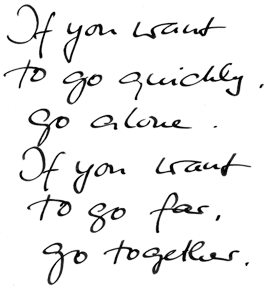 If you want
to go quickly.
go alone.
If you want
to go far,
go together.